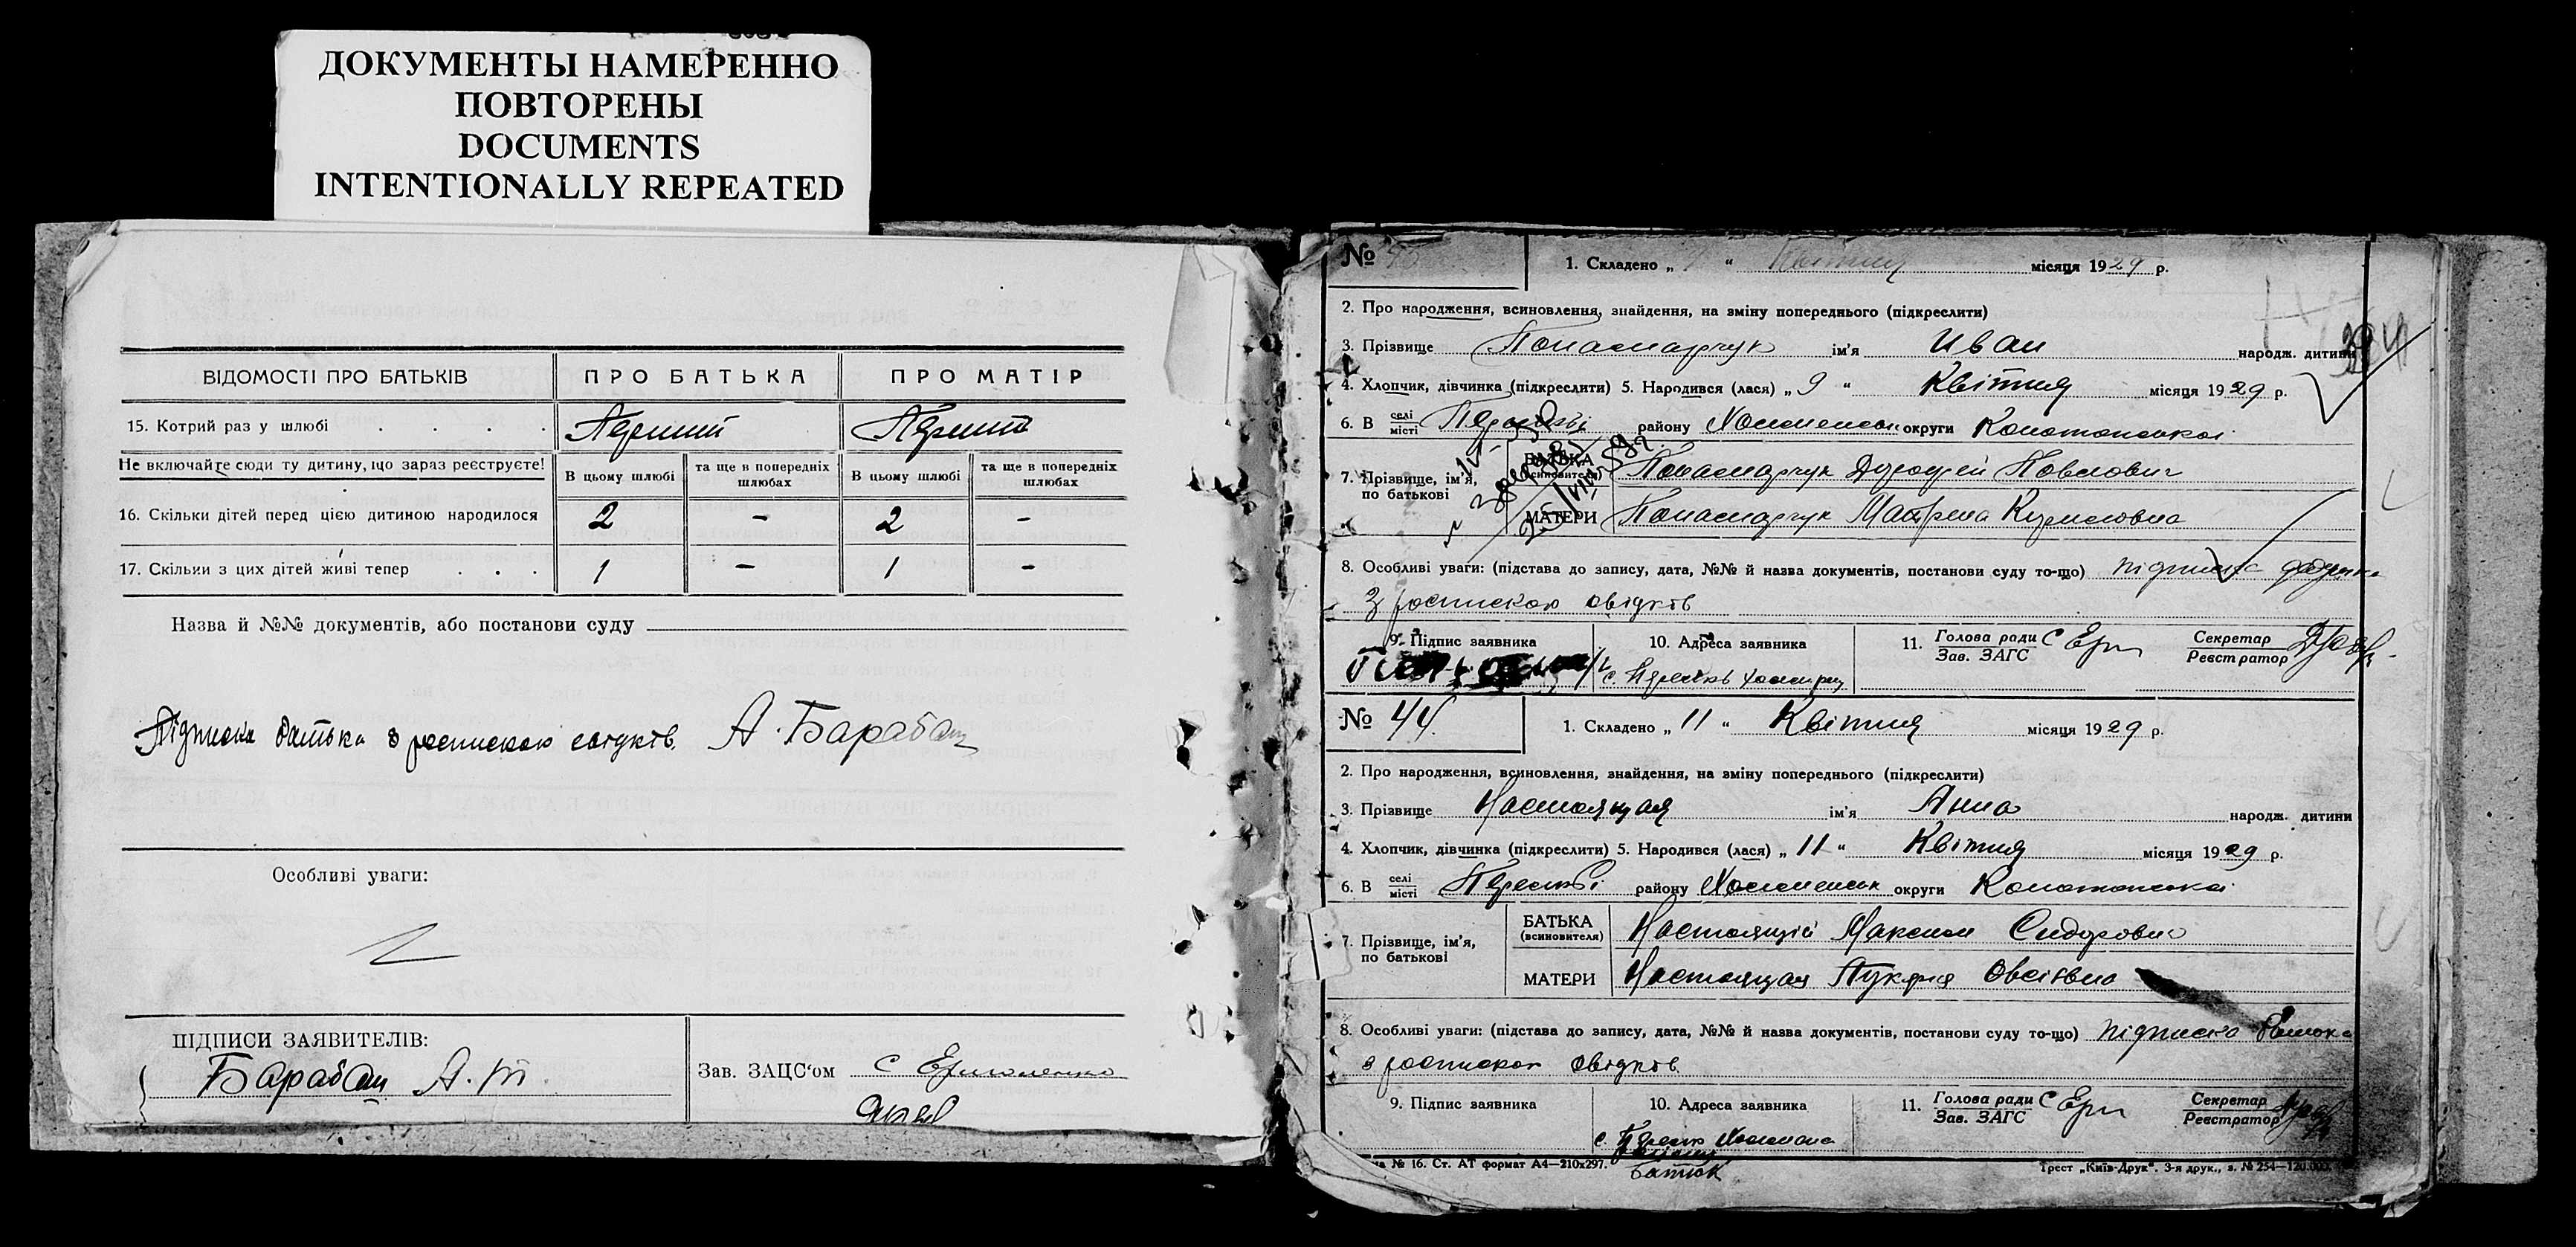 ДОКУМЕНТЫ НАМЕРЕННО
ПОВТОРЕНЫ
DOCUMENTS
INTENTIONALLY REPEATED
ВІДОМОСТІ ПРО БАТЬКІВ ПРО БАТЬКА ПРО МАТІР
15. Котрий раз у шлюбі . . . . Перший Перший
Не включайте сюди ту дитину, що зараз реєструєте! В цьому шлюбі та ще в попередніх шлюбах В цьому шлюбі та ще в попередніх шлюбах
16. Скільки дітей перед цією дитиною народилося 2 – 2 –
17. Скільки з цих дітей живі тепер . . . 1 – 1 –
Назва й №№ документів, або постанови суду
Підписка батька з роспискою свідків. А. Барабаш
Особливі уваги:
ПІДПИСИ ЗАЯВИТЕЛІВ:
Барабаш А.
Зав. ЗАЦС'ом С Ермоленко
№
1. Складено „ “ Квітня місяця 1929 р.
2. Про народження, всиновлення, знайдення, на зміну попереднього (підкреслити)
3. Прізвище Понамарчук ім'я Иван народж. дитини
4. Хлопчик, дівчинка (підкреслити) 5. Народився (лася) „ 9 “ Квітня місяця 1929 р.
6. В селі місті району округи Конотопської
7. Прізвище, ім'я, по батькові
БАТЬКА (всиновителя) Понамарчук Павлович
МАТЕРИ Понамарчук Матрена Кузмовна
8. Особливі уваги: (підстава до запису, дата, №№ й назва документів, постанови суду то-що) підписка батька
з роспискою свідків
9. Підпис заявника 10. Адреса заявника 11. Голова ради Зав. ЗАГС С Ерм Секретар Реєстратор
№ 44.
1. Складено „ 11 “ Квітня місяця 1929 р.
2. Про народження, всиновлення, знайдення, на зміну попереднього (підкреслити)
3. Прізвище Настоящая ім'я Анна народж. дитини
4. Хлопчик, дівчинка (підкреслити) 5. Народився (лася) „ 11 “ Квітня місяця 1929 р.
6. В селі місті району округи Конотопської
7. Прізвище, ім'я, по батькові
БАТЬКА (всиновителя) Настоящий Максим Сидорович
МАТЕРИ Настоящая Овсіївна
8. Особливі уваги: (підстава до запису, дата, №№ й назва документів, постанови суду то-що) підписка батька
з роспискою свідків
9. Підпис заявника 10. Адреса заявника 11. Голова ради Зав. ЗАГС С Ерм Секретар Реєстратор
Батюк
№ 16. Ст. АТ формат А4—210x297.
Трест „Київ-Друк“. 3-я друк., з. № 254—120.000.